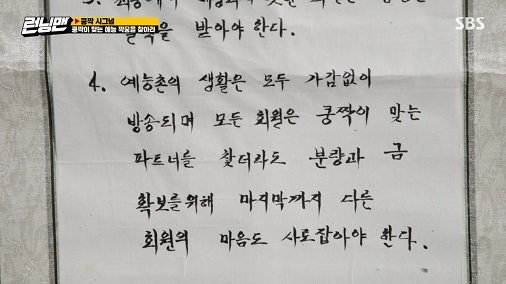 런닝맨
▶쿵짝 시그널
쿵짝이 맞는 예능 짝꿍을 찾아라
SBS
받아야 한다.
4. 예능촌의 생활은 모두 가감없이
방송되며 모든 회원은 쿵짝이 맞는
파트너를 찾더라도 분량과 금
확보를위해 마지막까지 다른
회원의 마음도 사로잡아야 한다.